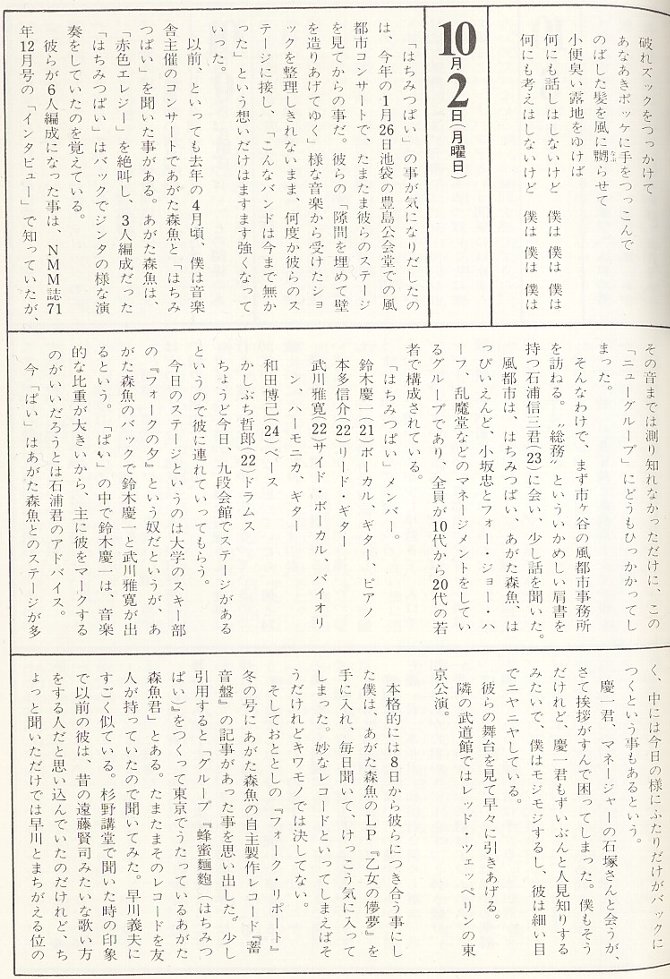 破れズックをつっかけて
あなあきポッケに手をつっこんで
のばした髪を風に嬲らせて
小便臭い露地をゆけば
何にも話しはしないけど　僕は　僕は　僕は
何にも考えはしないけど　僕は　僕は　僕は
10月2日(月曜日)
「はちみつぱい」の事が気になりだしたの
は、今年の1月26日池袋の豊島公会堂での風
都市コンサートで、たまたま彼らのステージ
を見てからの事だ。彼らの「隙間を埋めて壁
を造りあげてゆく」様な音楽から受けたショ
ックを整理しきれないまま、何度か彼らのス
テージに接し、「こんなバンドは今まで無か
った」という想いだけはますます強くなって
いった。
以前、といっても去年の4月頃、僕は音楽
舎主催のコンサートであがた森魚と「はちみ
つぱい」を聞いた事がある。あがた森魚は、
「赤色エレジー」を絶叫し、3人編成だった
「はちみつぱい」はバックでジンタの様な演
奏をしていたのを覚えている。
彼らが6人編成になった事は、NMM誌71
年12月号の「インタビュー」で知っていたが、
その音までは測り知れなかっただけに、この
「ニューグループ」にどうもひっかかってし
まった。
そんなわけで、まず市ヶ谷の風都市事務所
を訪ねる。〝総務〟といういかめしい肩書を
持つ石浦信三君(23)に会い、少し話を聞いた。
風都市は、はちみつぱい、あがた森魚、は
っぴいえんど、小坂忠とフォー・ジョー・ハ
ーフ、乱魔堂などのマネージメントをしてい
るグループであり、全員が10代から20代の若
者で構成されている。
「はちみつぱい」メンバー。
鈴木慶一(21)ボーカル、ギター、ピアノ
本多信介(22)リード・ギター
武川雅寛(22)サイド・ボーカル、バイオリ
ン、ハーモニカ、ギター
和田博巳(24)ベース
かしぶち哲郎(22)ドラムス
ちょうど今日、九段会館でステージがある
というので彼に連れていってもらう。
今日のステージというのは大学のスキー部
の『フォークの夕』という奴だというが、あ
がた森魚のバックで鈴木慶一と武川雅寛が出
るという。「ぱい」の中で鈴木慶一は、音楽
的な比重が大きいから、主に彼をマークする
のがいいだろうとは石浦君のアドバイス。
今「ぱい」はあがた森魚とのステージが多
く、中には今日の様にふたりだけがバックに
つくという事もあるという。
慶一君、マネージャーの石塚さんと会うが、
さて挨拶がすんで困ってしまった。僕もそう
だけれど、慶一君もずいぶんと人見知りする
みたいで、僕はモジモジするし、彼は細い目
でニヤニヤしている。
彼らの舞台を見て早々に引きあげる。
隣の武道館ではレッド・ツェッペリンの東
京公演。
本格的には8日から彼らにつき合う事にし
た僕は、あがた森魚のLP『乙女の儚夢』を
手に入れ、毎日聞いて、けっこう気に入って
しまった。妙なレコードといってしまえばそ
うだけれどキワモノでは決してない。
そしておととしの『フォーク・リポート』
冬の号にあがた森魚の自主製作レコード『蓄
音盤』の記事があった事を思い出した。少し
引用すると「グループ『蜂蜜麺麭(はちみつ
ぱい)』をつくって東京でうたっているあがた
森魚君」とある。たまたまそのレコードを友
人が持っていたので聞いてみた。早川義夫に
すごく似ている。杉野講堂で聞いた時の印象
で以前の彼は、昔の遠藤賢司みたいな歌い方
をする人だと思い込んでいたのだけれど、ち
ょっと聞いただけでは早川とまちがえる位の